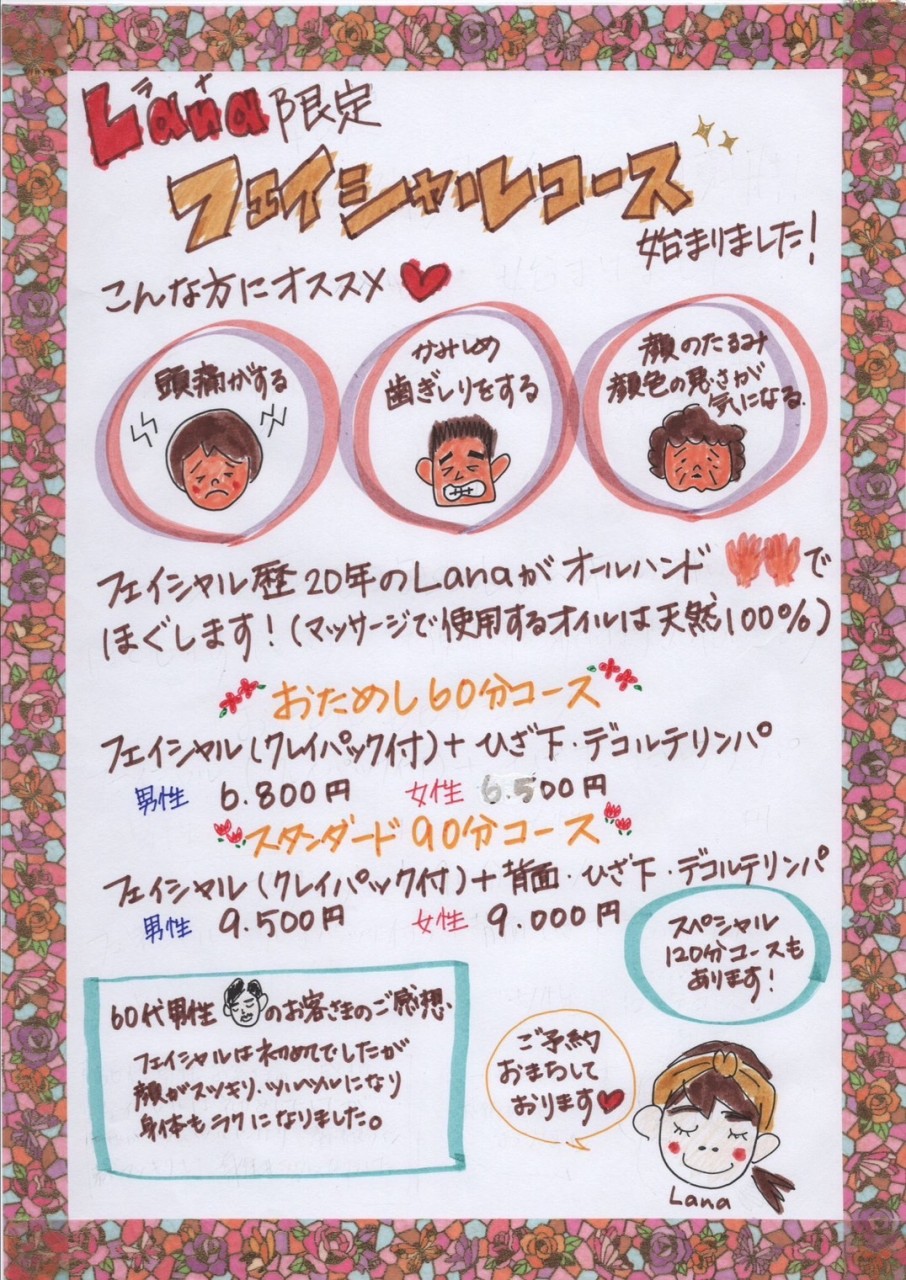 ラナ
Lana限定
フェイシャルコース
始まりました!
こんな方にオススメ
頭痛がする
かみしめ
歯ぎしりをする
顔のたるみ
顔色の悪さが
気になる.
フェイシャル歴20年のLanaがオールハンドで
ほぐします!(マッサージで使用するオイルは天然100%)
おためし60分コース
フェイシャル(クレイパック付)+ひざ下・デコルテリンパ
男性 6.800円 女性 6.500円
スタンダード90分コース
フェイシャル(クレイパック付)+背面・ひざ下・デコルテリンパ
男性 9.500円 女性 9.000円
スペシャル
120分コースも
あります!
60代男性のお客さまのご感想.
フェイシャルは初めてでしたが
顔がスッキリ、ツルツルになり
身体もラクになりました。
ご予約
おまちして
おります
Lana